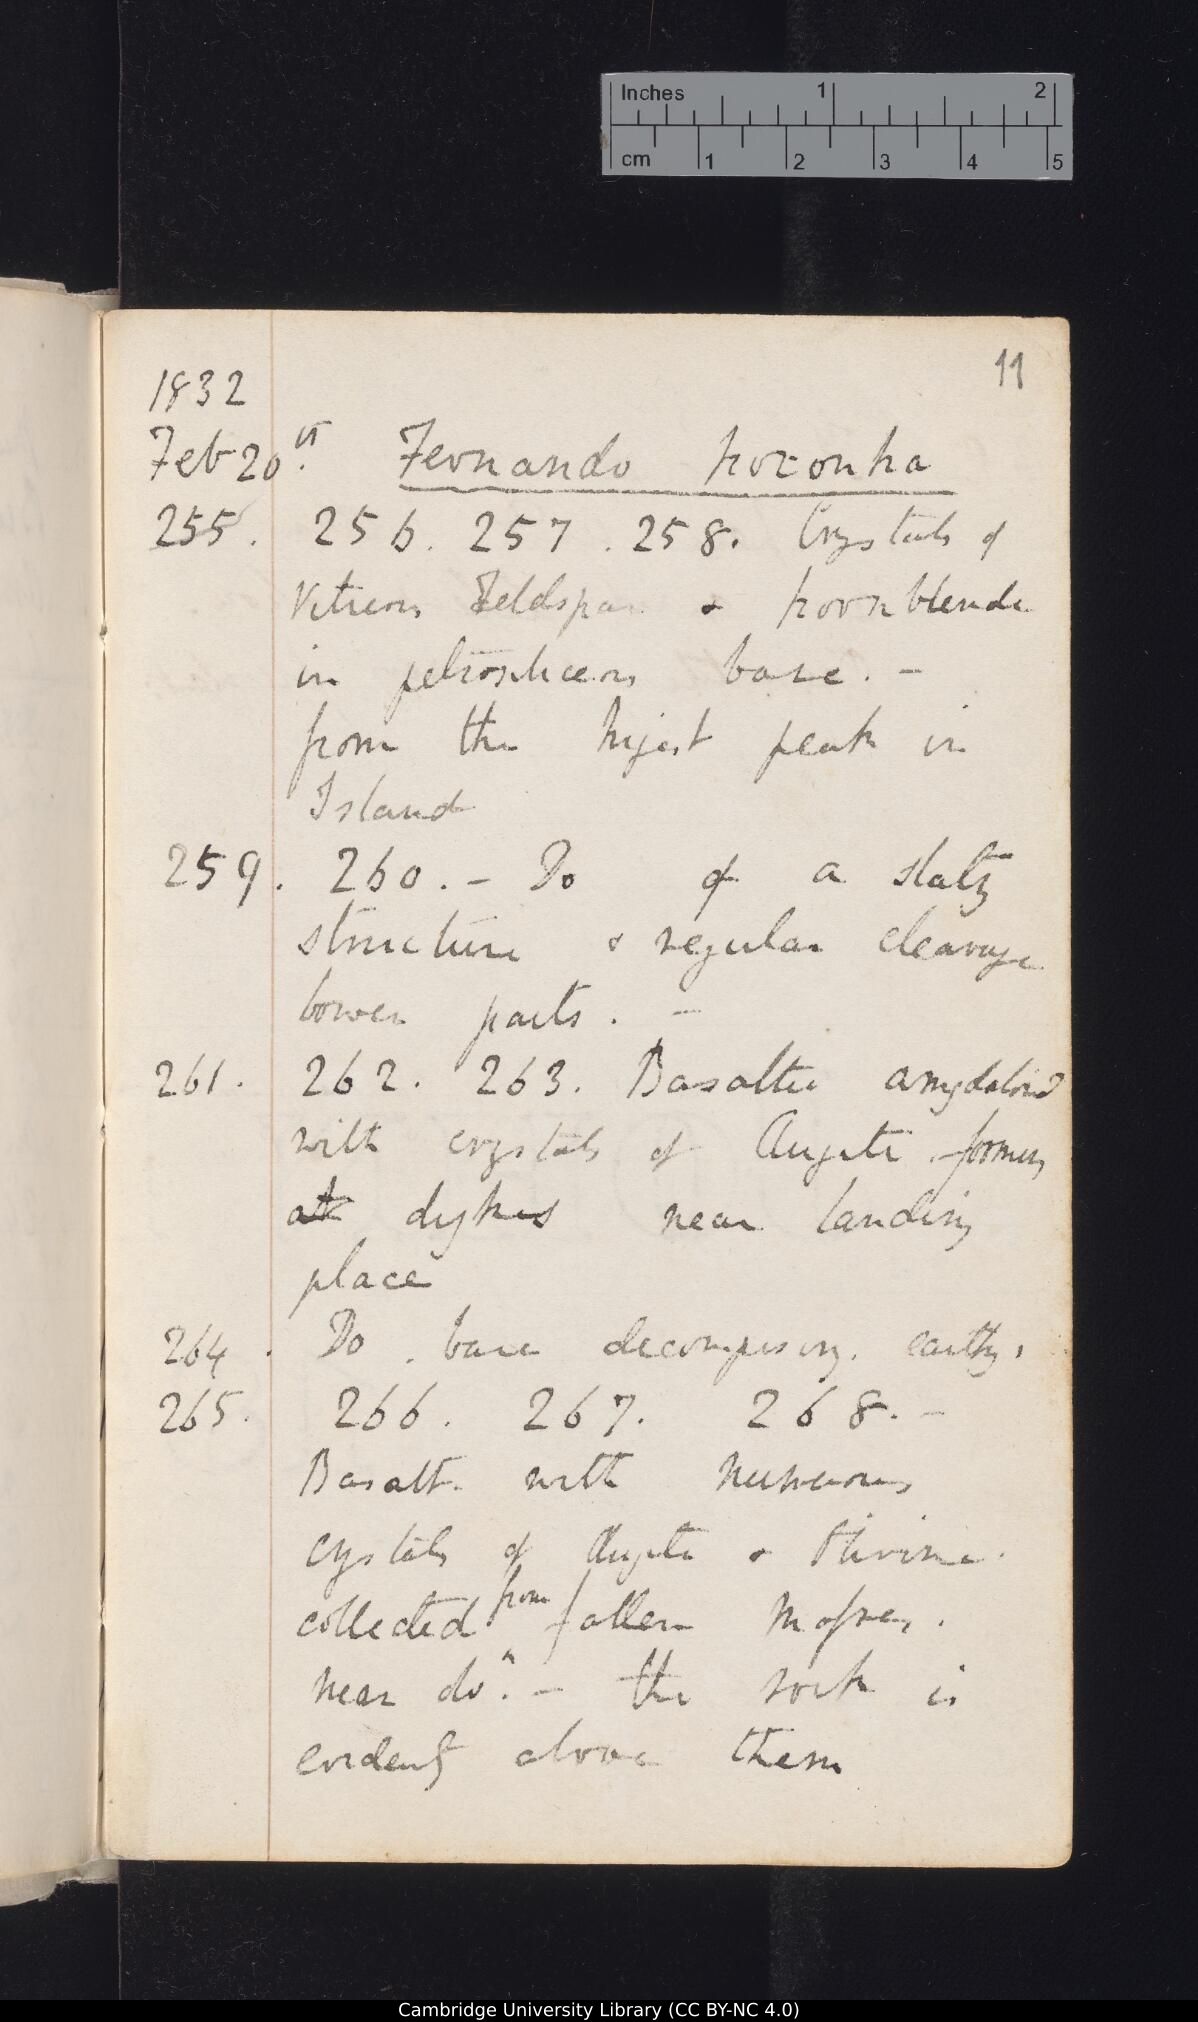 Inches 1 2
cm 1 2 3 4 5
11
1832
Feb 20th. Fernando Noronha
255. 256. 257. 258. Crystals of
Vitreous Feldspar & hornblende
in petrosiliceous base. –
from the highest peak in
Island
259. 260. – Do of a slaty
structure & regular cleavage
lower parts. –
261. 262. 263. Basaltic amygdaloid
with crystals of Augite forming
dykes near landing
place
264. Do. base decomposing. earthy.
265. 266. 267. 268. –
Basalt. with numerous
crystals of Augite & Olivine.
collected from fallen masses.
near do. – the rock is
evidently above them
Cambridge University Library (CC BY-NC 4.0)